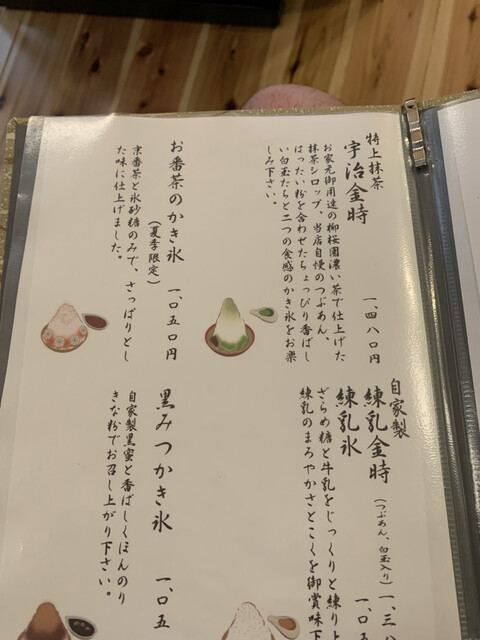 特上抹茶
宇治金時
一、四八〇円
お家元御用達の柳桜園濃い茶で仕上げた
抹茶シロップ、当店自慢のつぶあん、
はったい粉を合わせたちょっぴり香ばし
い白玉たちと二つの食感のかき氷をお楽
しみ下さい。
お番茶のかき氷
(夏季限定)
一、〇五〇円
京番茶と氷砂糖のみで、さっぱりとし
た味に仕上げました。
自家製
練乳金時
(つぶあん、白玉入り)
一、三八
練乳氷
一、〇五
ざらめ糖と牛乳をじっくりと練り上
練乳のまろやかさとこくを御賞味下
黒みつかき氷
一、〇五
自家製黒蜜と香ばしくほんのり
きな粉でお召し上がり下さい。